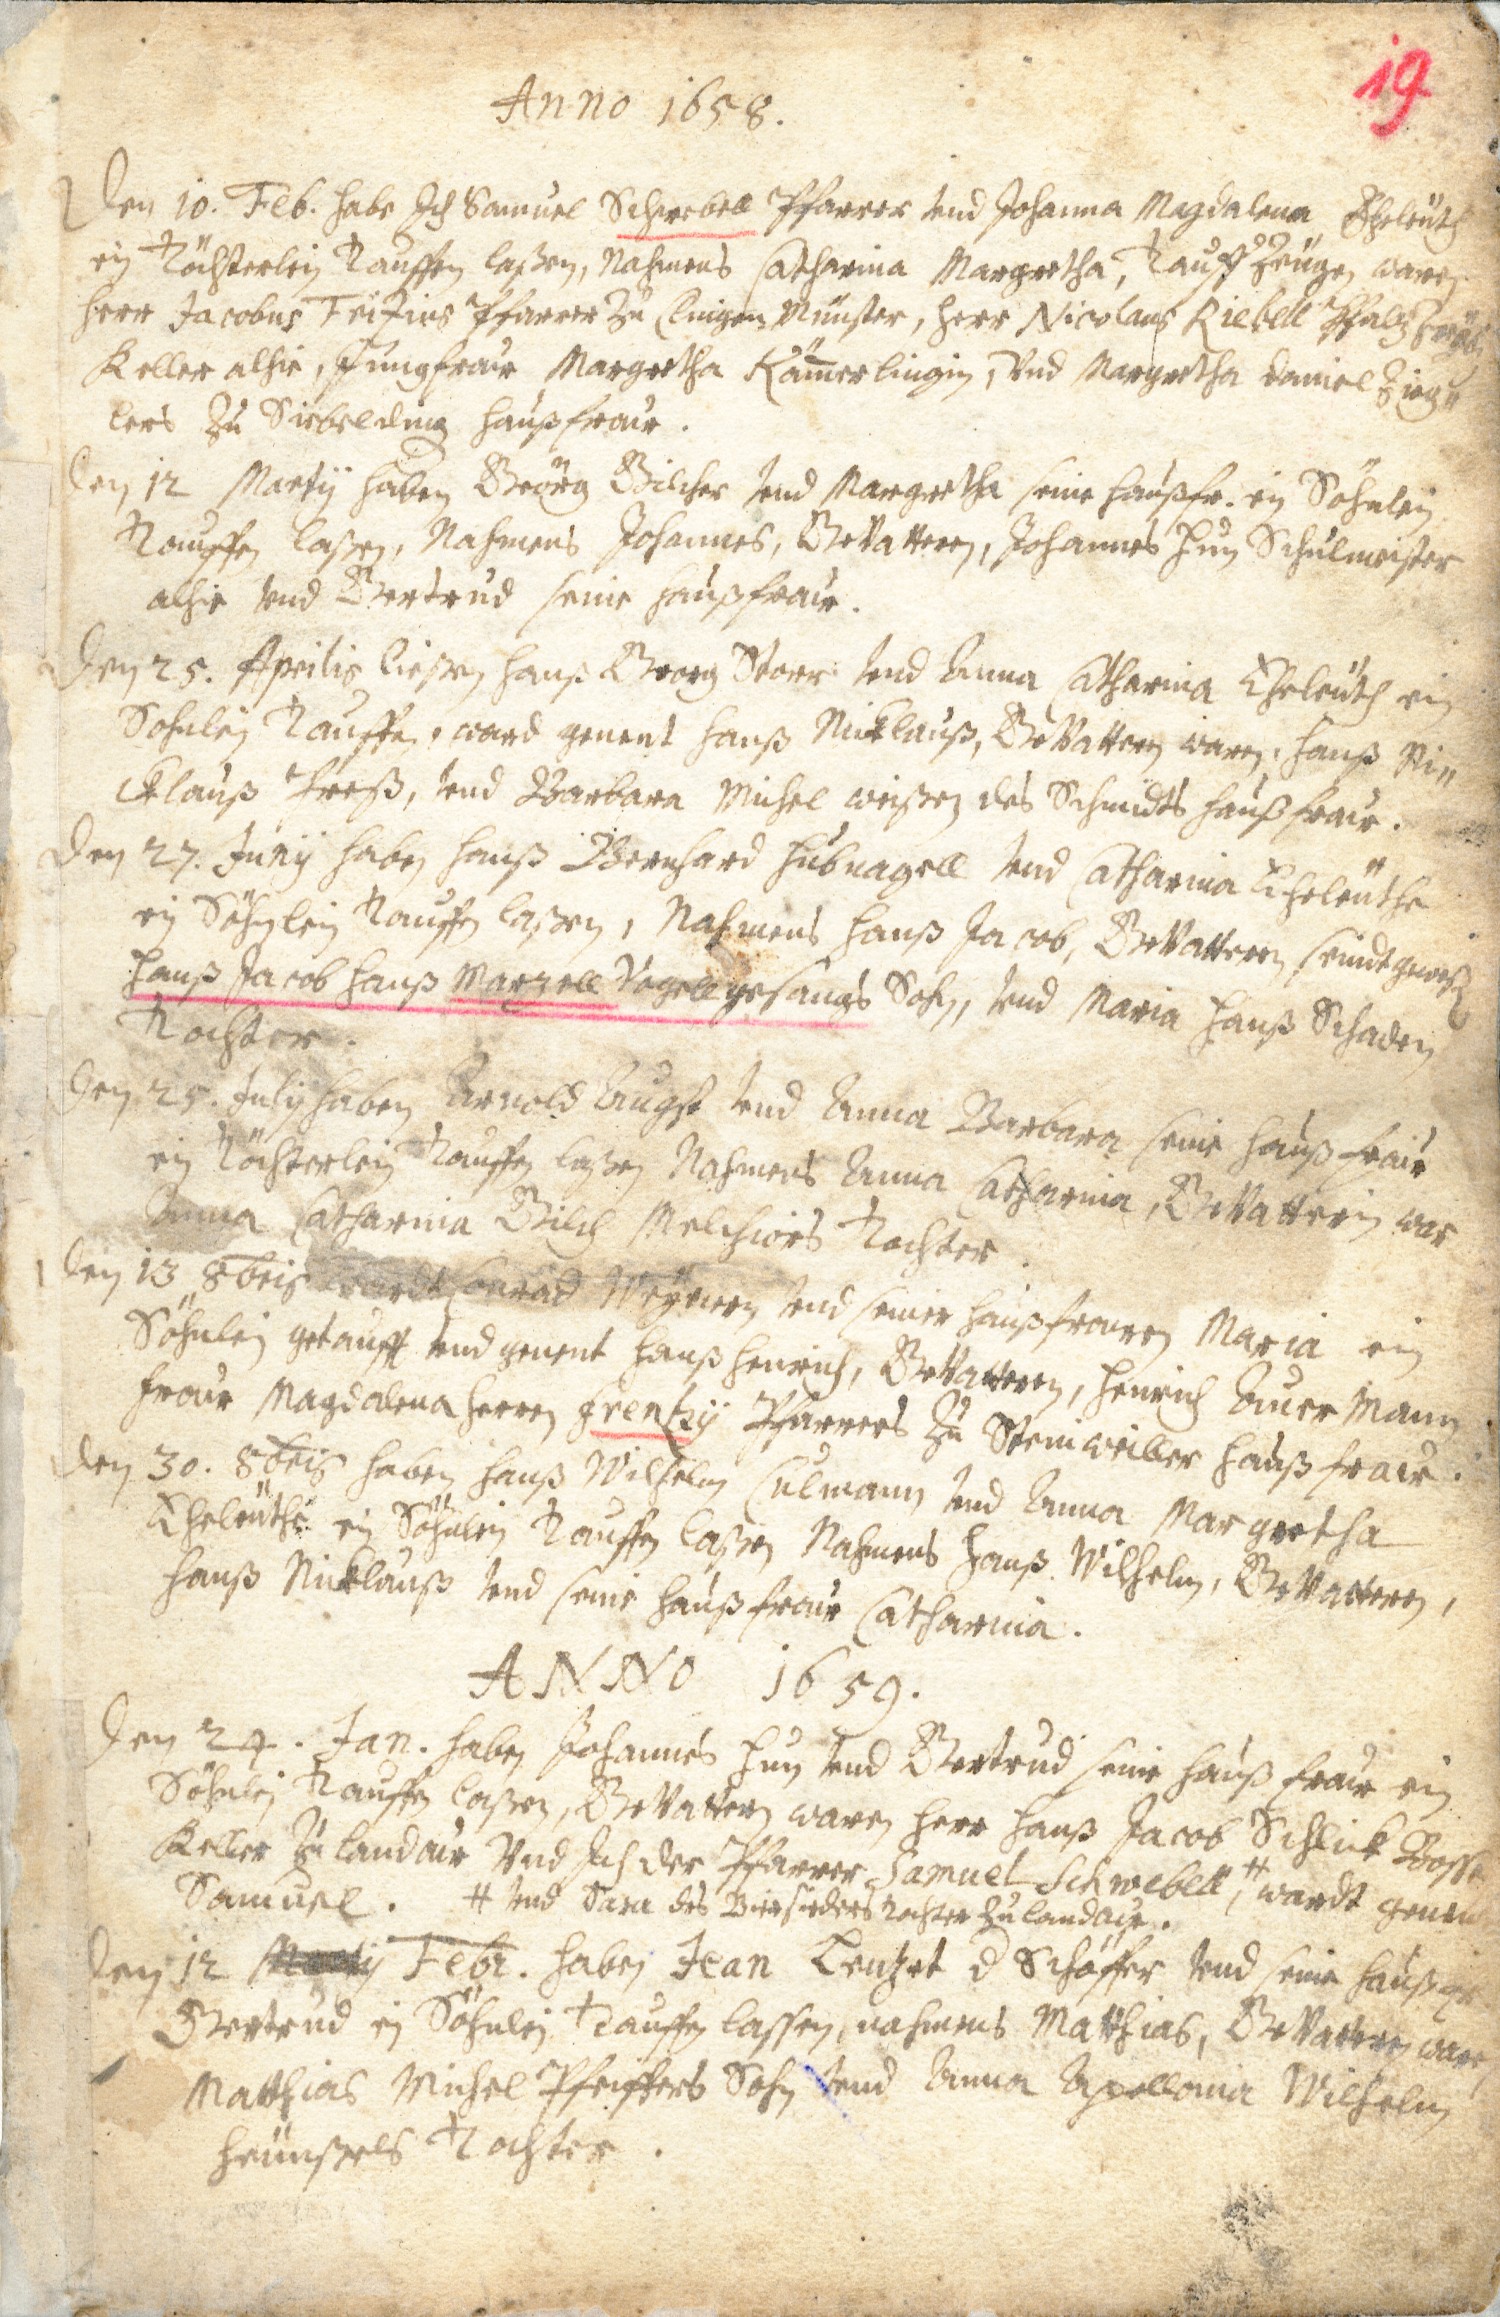 19
Anno 1658.
Den 10. Feb. habe Ich Samuel Schwebell Pfarrer vnd Johanna Magdalena Eheleüth
ein Töchterlein Tauffen laßen, Nahmens Catharina Margretha, Tauff Zeügen waren
Herr Jacobus Pfarrer zu Clingen Münster, Herr Nicolaus Riebell Pfaltz
Keller alhie, Jungfraw Margretha Kam̄erlingin, Vnd Margretha Daniel Zieg„
lers zu Siebelding haußfraw.
Den 12 Martij haben Geörg Bilcher vnd Margretha seine haußfr. ein Söhnlein
Tauffen laßen, Nahmens Johannes, Gevattern, Johannes Hun Schulmeister
alhie vnd Gertrud seine haußfraw.
Den 25. Aprilis ließen Hanß Georg Storr vnd Anna Catharina Eheleüth ein
Sohnlein Tauffen, ward genent Hanß Nicklauß, Gevattern waren, Hanß Ni„
cklauß Freß, vnd Barbara Michel weißen des Schmidts haußfraw.
Den 27. Junij haben Hanß Bernhard Hubnagell vnd Catharina Eheleüthe
ein Söhnlein Tauffen laßen, Nahmens Hanß Jacob, Gevattern seindt geweßen
Hanß Jacob Hanß Marzell Vogellgesangs Sohn, vnd Maria Hanß Schaden
Tochter.
Den 25. Julij haben Arnold Augst vnd Anna Barbara seine haußfraw
ein Töchterlein Tauffen laßen Nahmens Anna Catharina, Gevatterin war
Anna Catharina Bilch Melchiors Tochter.
Den 13 8bris wardt Conrad Weÿern vnd seiner haußfrawen Maria ein
Söhnlein getaufft vnd genent Hanß Henrich, Gevattern, Henrich Auer Mann
fraw Magdalena Herren Frentzij Pfarrers zu Steinweiller haußfraw.
Den 30. 8bris haben Hanß Wilhelm Culmann vnd Anna Margretha
Eheleüthe ein Söhnlein Tauffen laßen Nahmens Hanß Wilhelm, Gevattern,
Hanß Nicklauß vnd seine haußfraw Catharina.
ANNO 1659.
Den 24. Jan. haben Johannes Hun vnd Gertrud seine haußfraw ein
Söhnlein Tauffen laßen, Gevattern waren Herr Hanß Jacob Schlick
Keller zu Landaw Vnd Ich der Pfarrer Samuel Schwebell, # wardt genent
Samuel. # vnd Sara des Biersieders Tochter zu Landaw.
Den 12 Martij Febr. haben Jean Lentzet d Schäffer vnd seine haußfr
Gertrud ein Söhnlein Tauffen lassen, nahmens Matthias, Gevattern waren
Matthias Michel Pfeiffers Sohn vnd Anna Apollonia Wilhelm
Heünßels Tochter.